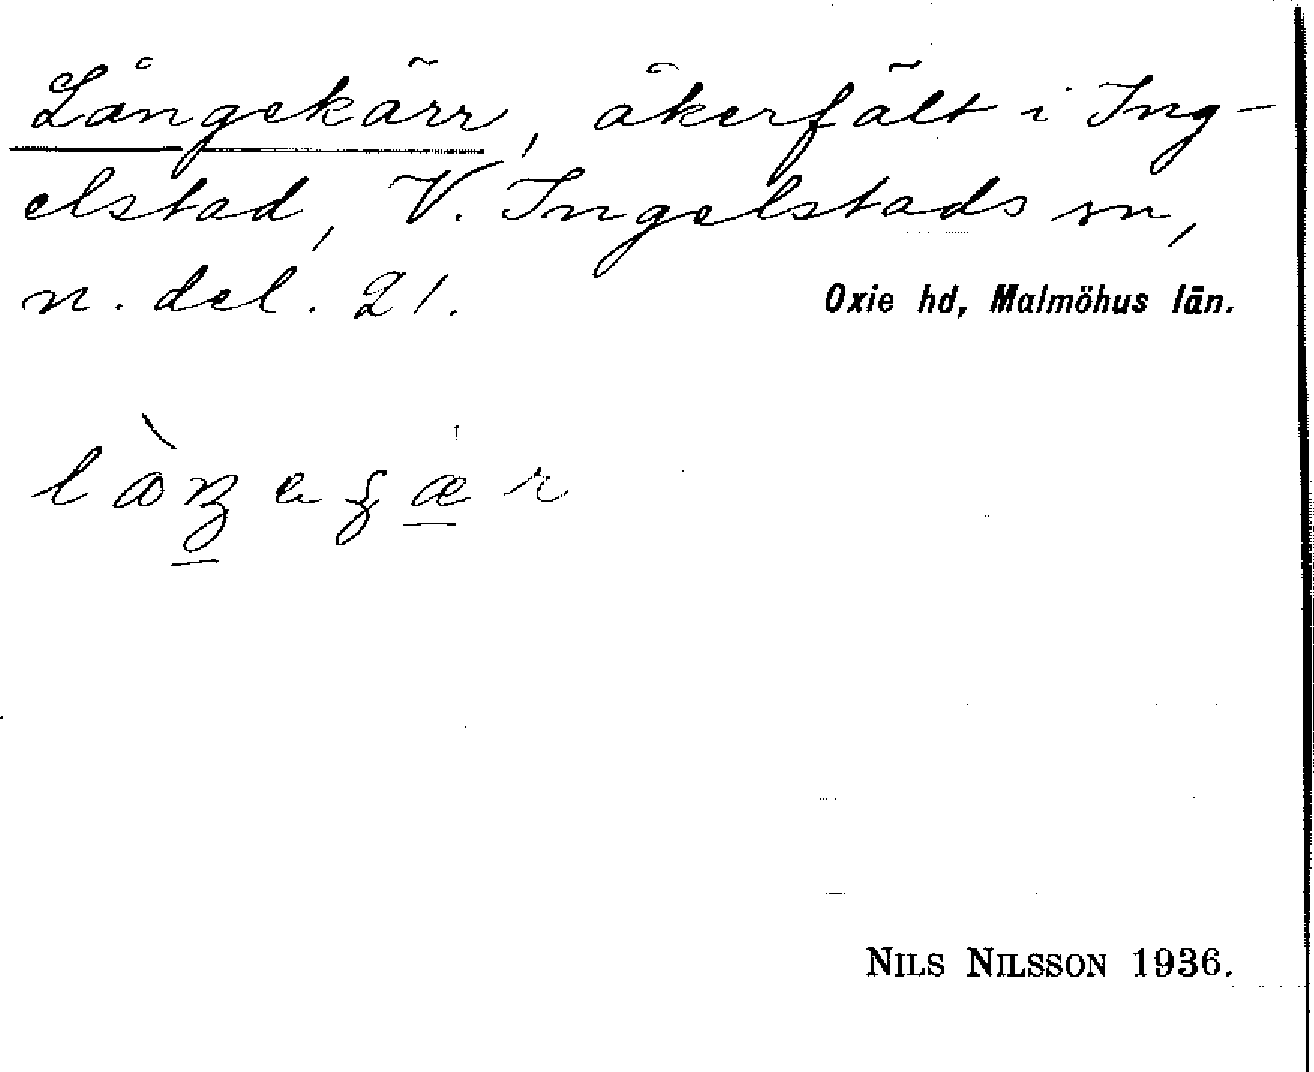 Långekärr, åkerfält i Ing-
elstad, V. Ingelstads sn,
n. del. 21.
Oxie hd, Malmöhus län.
NILS NILSSON 1936.